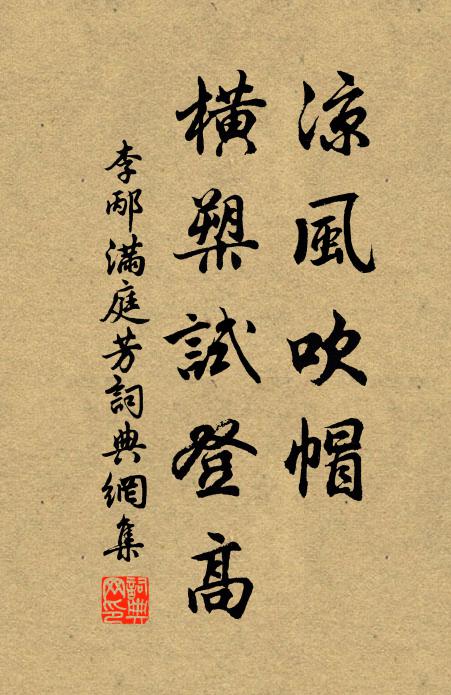 凉風吹帽
橫槊試登高
李邴滿庭芳詞典網集
詞典网印